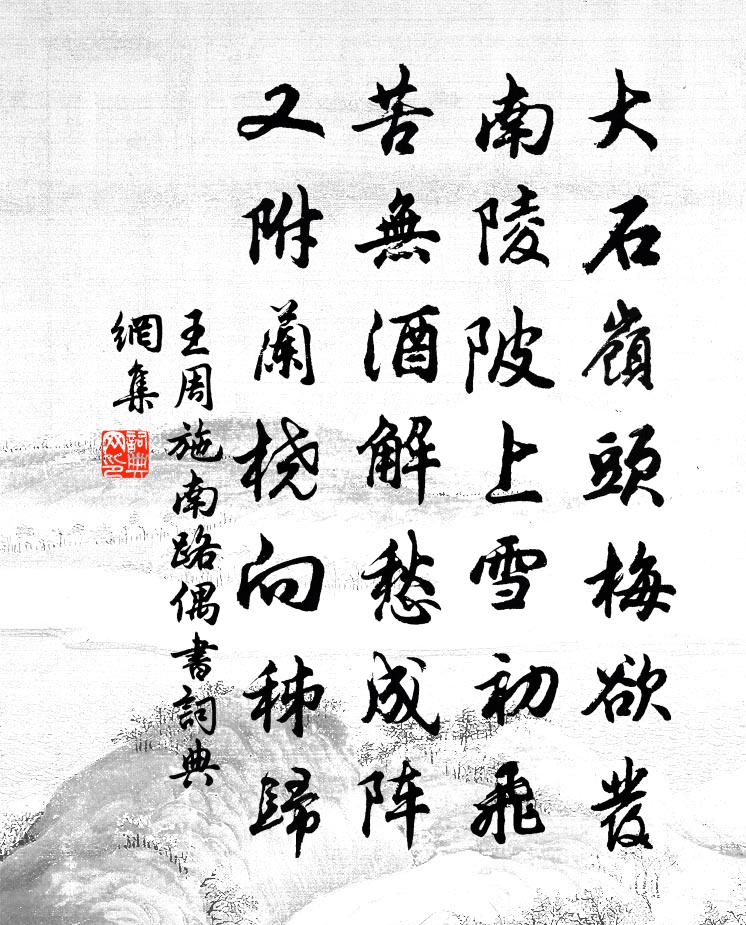 大石嶺頭梅欲發
南陵陂上雪初飛
苦無酒解愁成阵
又附蘭橈向秭歸
王周施南路偶書詞典
網集
詞典網印